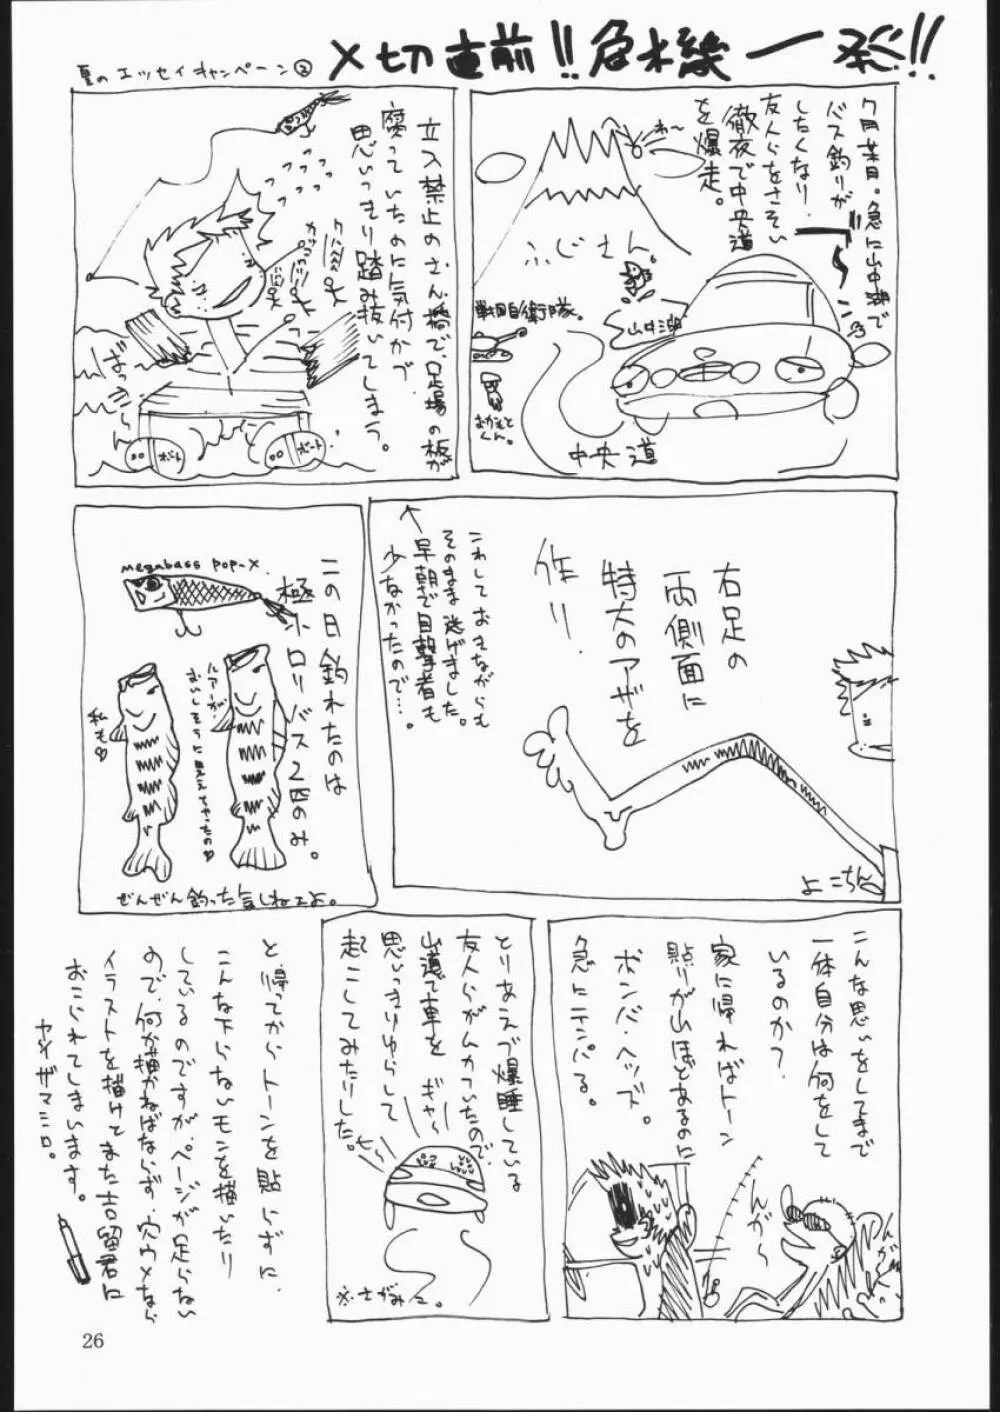 夏のエッセイキャンペーン②
〆切直前!!危機一発!!
7月某日。急に山中湖で
バス釣りが
したくなり、
友人らをさそい
徹夜で中央道
を爆走。
わ〜
ふじさん
山中湖
戦国自衛隊。
おかもと
くん。
中央道
立入禁止のさん橋で、足場の板が
腐っていたのに気付かず
思いっきり踏み抜いてしまう。
ボート
ボート
右足の
両側面に
特大のアザを
作り、
こわしておきながらも
そのまま逃げました。
↑早朝で目撃者も
少なかったので…。
よこちん
この日釣れたのは
極小ロリバス2匹のみ。
megabass pop-x.
ルアーが
おいしそうに見えちゃったの♡
私も♡
ぜんぜん釣った気しねェよ。
こんな思いをしてまで
一体自分は何をして
いるのか?
家に帰ればトーン
貼りが山ほどあるのに
ボンバ・ヘッズ。
急にテンパる。
んがー
とりあえず爆睡している
友人らがムカついたので、
山道で車を
思いっきりゆらして
起こしてみたりした。
ギャー
※さがみこ。
と、帰ってからトーンを貼らずに
こんな下らないモンを描いたり
しているのですが、ページが足らない
ので、何か描かねばならず、穴ウメなら
イラストを描けとまた吉留君に
おこられてしまいます。
ヤノイザマミロ。
26